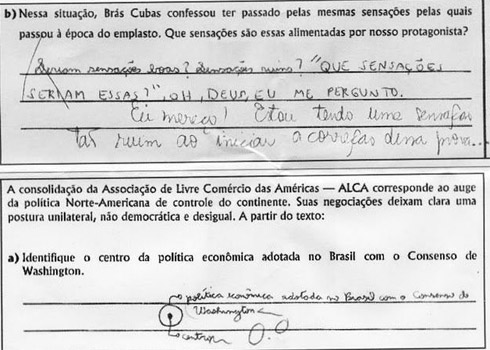 b) Nessa situação, Brás Cubas confessou ter passado pelas mesmas sensações pelas quais
passou à época do emplasto. Que sensações são essas alimentadas por nosso protagonista?
Seriam sensações boas? Sensações ruins? "QUE SENSAÇÕES
SERIAM ESSAS?", OH, DEUS, EU ME PERGUNTO.
Eu mereço! Estou tendo uma sensação
tão ruim ao iniciar a correção dessa prova...
A consolidação da Associação de Livre Comércio das Américas — ALCA corresponde ao auge
da política Norte-Americana de controle do continente. Suas negociações deixam clara uma
postura unilateral, não democrática e desigual. A partir do texto:
a) Identifique o centro da política econômica adotada no Brasil com o Consenso de
Washington.
política econômica adotada no Brasil com o Consenso de
Washington
centro
O.O